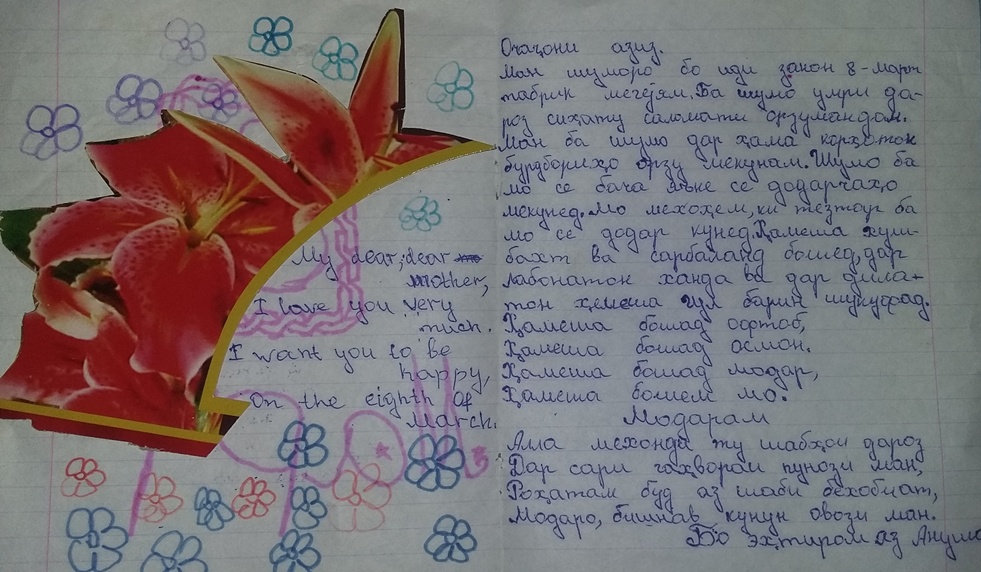 My dear, dear
mother,
I love you very
much.
I want you to be
happy,
on the eighth of
March.
Очаҷони азиз.
Ман шуморо бо иди занон 8-март
табрик мегӯям. Ба шумо умри да-
роз сиҳату саломати орзумандам.
Ман ба шумо дар ҳама корҳотон
бурдбориҳо орзу мекунам. Шумо ба
мо се бача яъне се додарчаҳо
мекунед. Мо мехоҳем, ки тезтар ба
мо се додар кунед. Ҳамеша хуш-
бахт ва сарбаланд бошед, дар
лабонатон ханда ва дар дила-
тон ҳамеша гул барин шукуфад.
Ҳамеша бошад офтоб,
Ҳамеша бошад осмон.
Ҳамеша бошад модар,
Ҳамеша бошем мо.
Модарам
Алла мехонди ту шабҳои дароз
Дар сари гаҳвораи пунози ман,
Роҳатам буд аз шаби бехобиат,
Модаро, бишнав кунун овози ман.
Бо эҳтиром аз